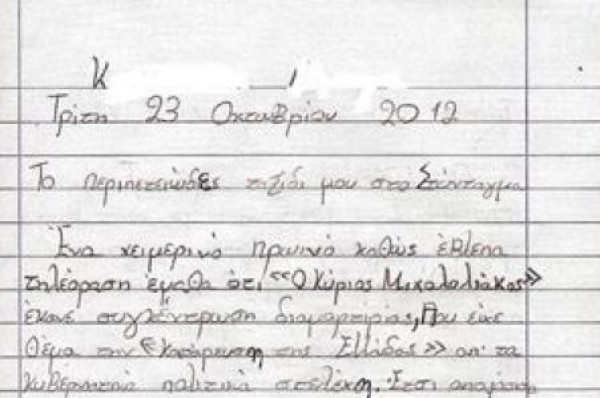 Κ
Τρίτη 23 Οκταβρίου 2012
Το περιπετειώδες ταξίδι μου στο Σύνταγμα
Ένα χειμερινό πρωινό καθώς έβλεπα
τηλέοραση έμαθα ότι "Ο Κύριος Μιχαλολιάκος»
έκανε συγκέντρωση διαμαρτειρίας, που είχε
Θέμα την «Κατάρευση της Ελλάδας» απ' τα
Κυβερνητικά πολιτικά στελέχη. Έτσι αποφάσισα